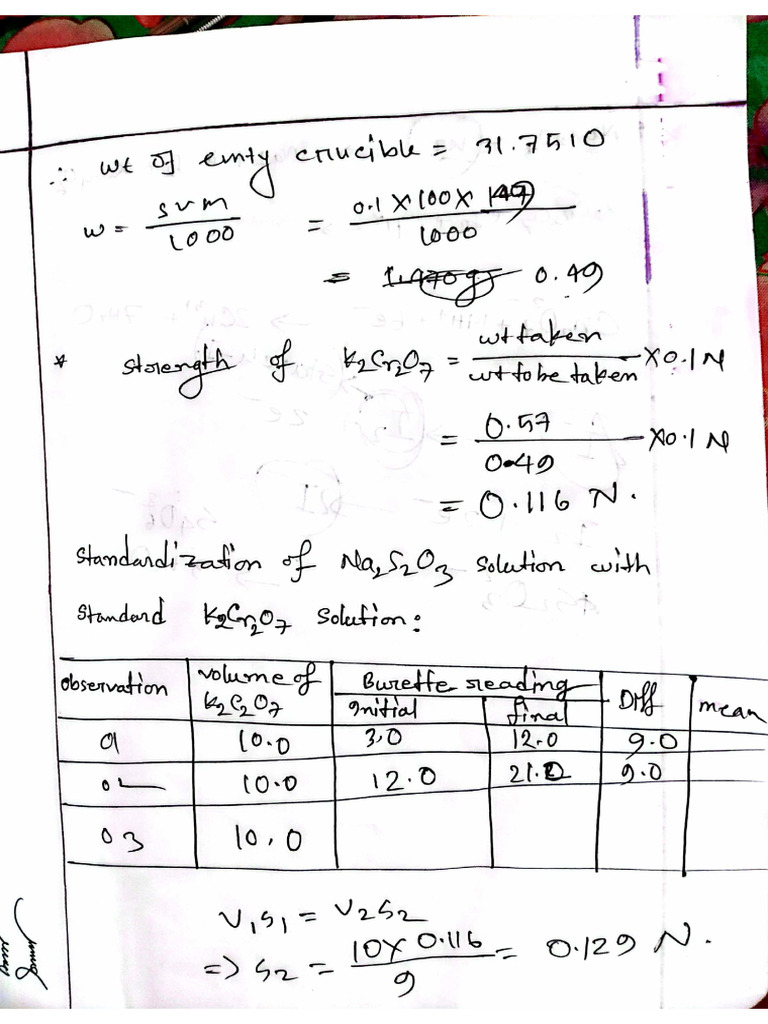 ∴ wt of emty crucible = 31.7510
w = svm / 1000 = 0.1 × 100 × 149 / 1000
= 0.49
* Strength of K2Cr2O7 = wt taken / wt to be taken × 0.1 N
= 0.57 / 0.49 × 0.1 N
= 0.116 N.
Standardization of Na2S2O3 solution with
Standard K2Cr2O7 solution:
observation volume of K2C2O7 Burette reading Diff mean
Initial final
01 10.0 3.0 12.0 9.0
02 10.0 12.0 21.0 9.0
03 10.0
V1S1 = V2S2
=> S2 = 10 × 0.116 / 9 = 0.129 N.